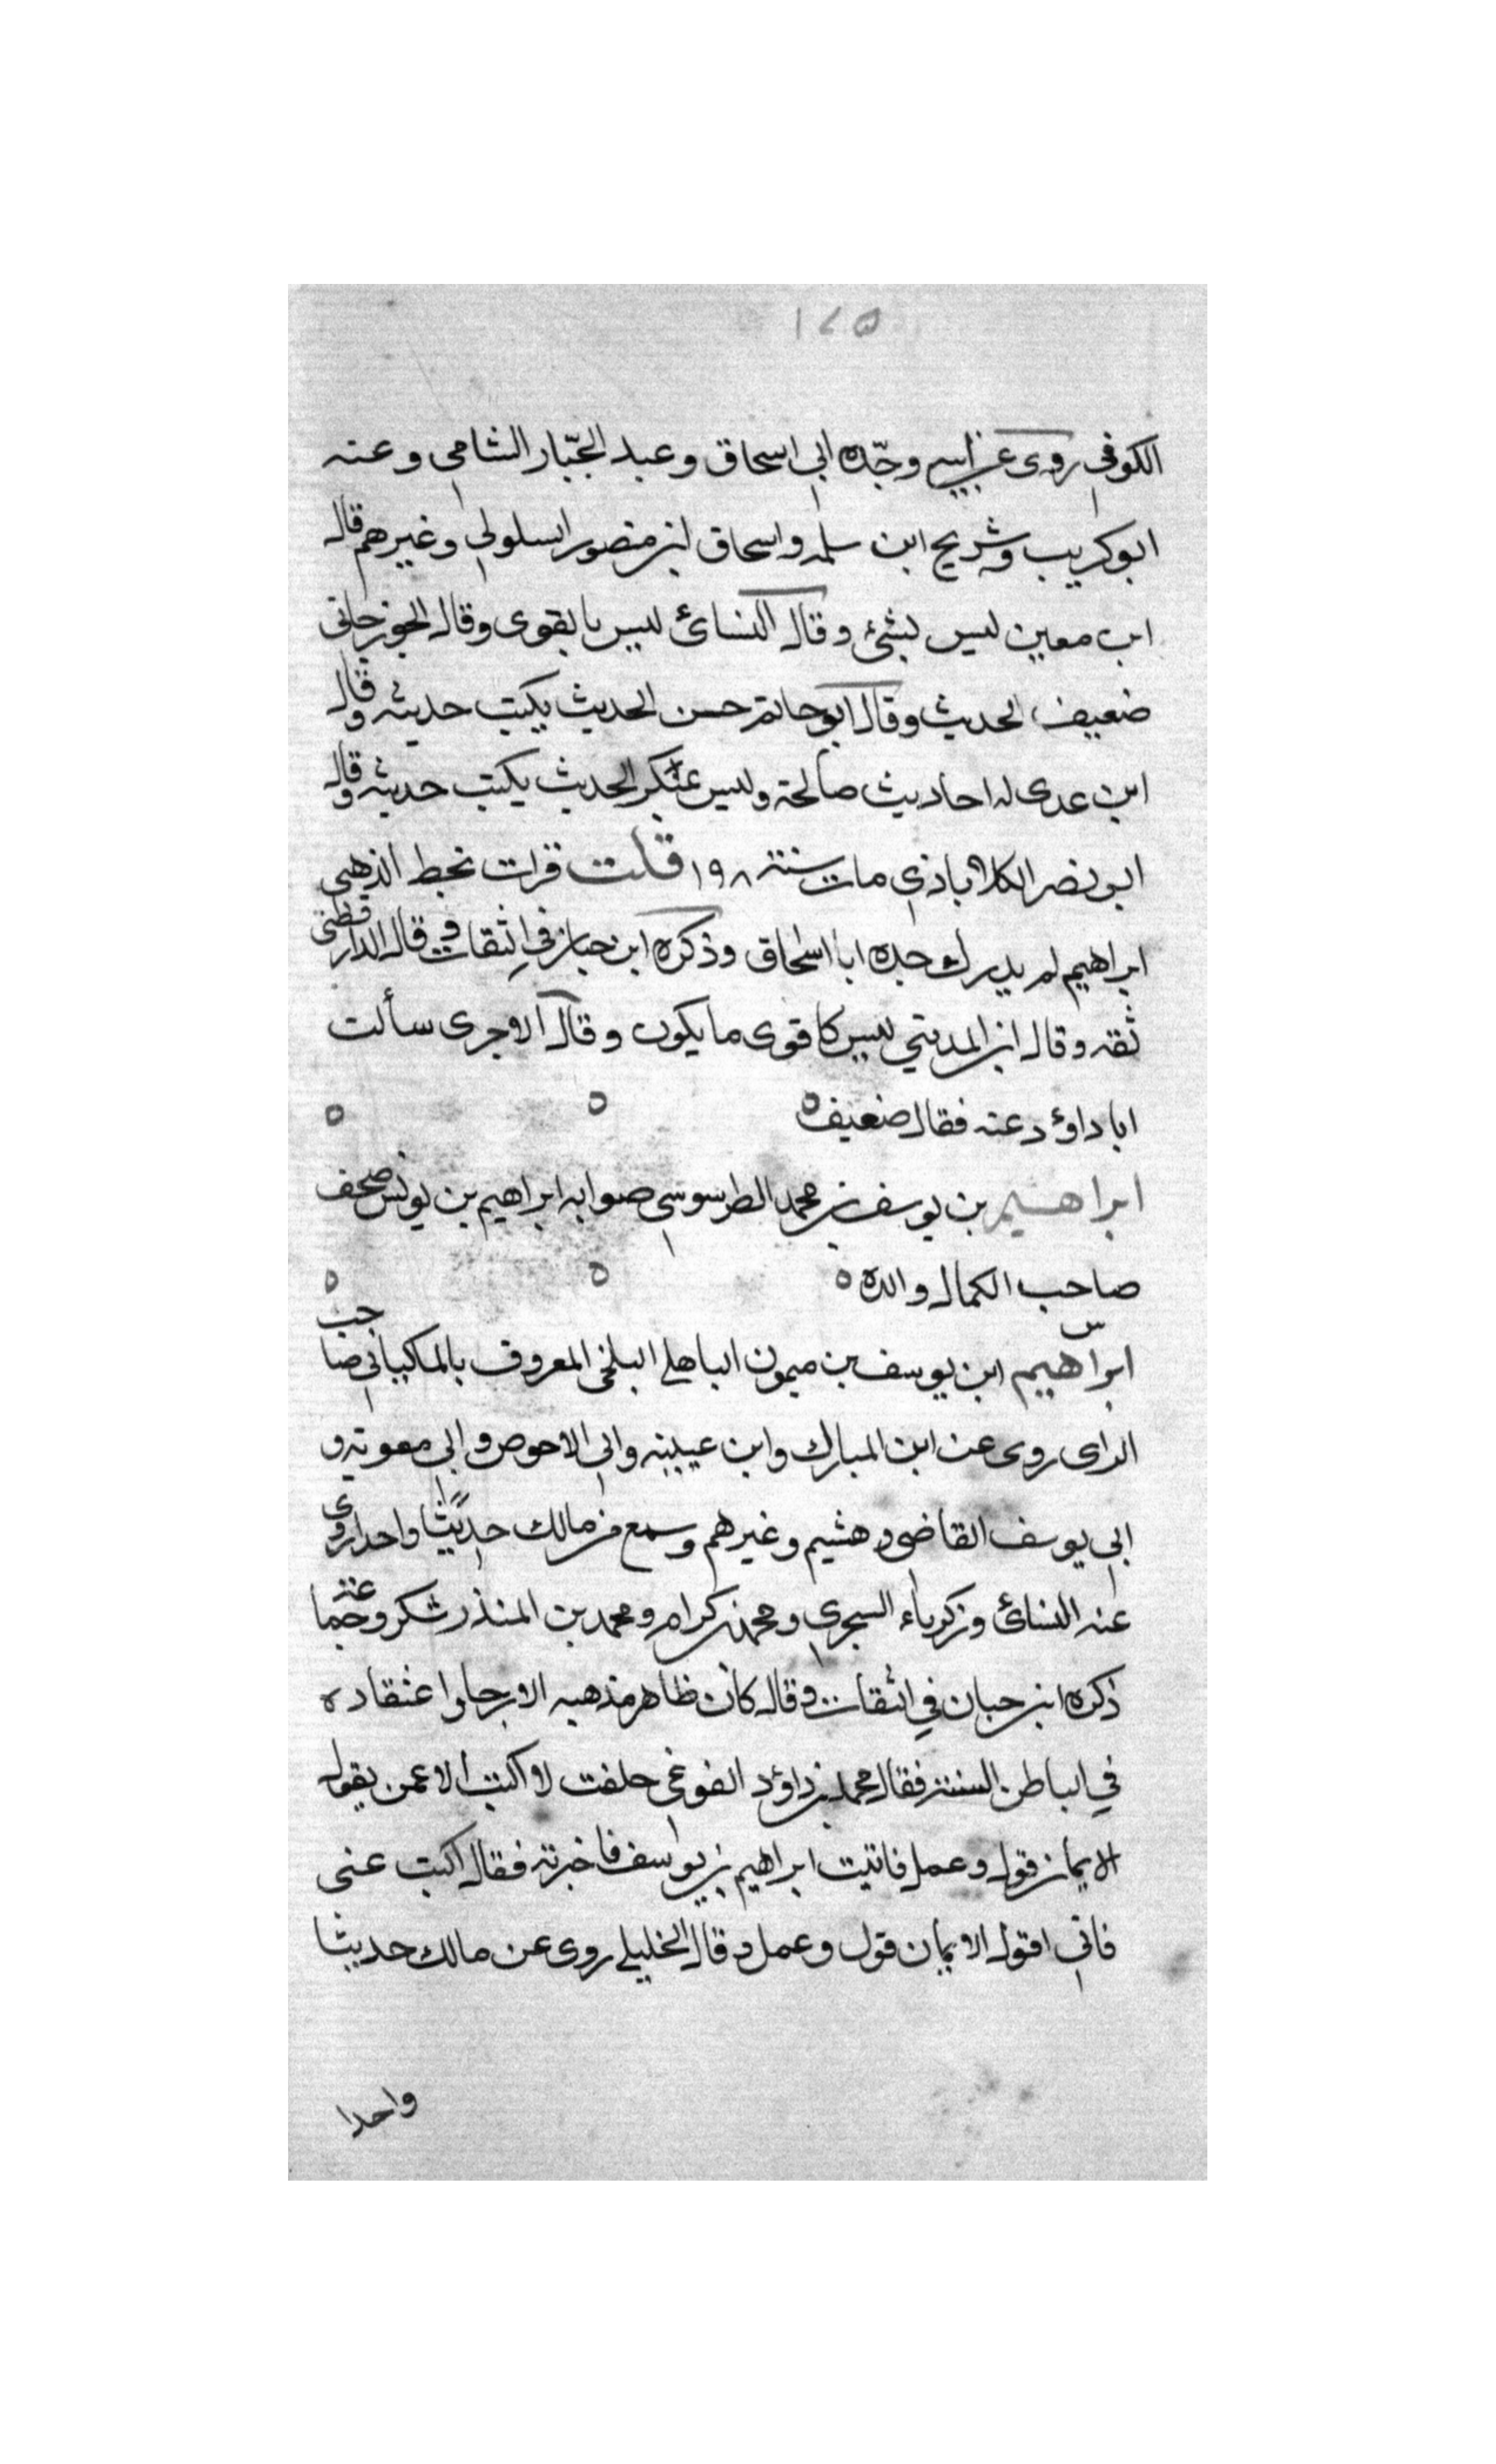 ١٤٥
الكوفي روى عن ابيه وجّده ابي اسحاق وعبد الجبّار الشامي وعنه
ابوكريب وشريح ابن سلمه واسحاق ابن منصور السلولي وغيرهم قال
ابن معين ليس بشئ وقال النسائ ليس بالقوى وقال الجوزجاني
ضعيف الحديث وقال ابوحاتم حسن الحديث يكتب حديثه وقال
ابن عدى له احاديث صالحة وليس بمنكر الحديث يكتب حديثه وقال
ابو نصر الكلاباذي مات سنة ١٩٨ قلت قرات بخط الذهبي
ابراهيم لم يدرك جده ابا اسحاق وذكره ابن حبان في الثقات وقال الدارقطني
ثقه وقال ابن المديني ليس كاقوى ما يكون وقال الاجرى سألت
ابا داوٗد عنه فقال ضعيف ٥ ٥ ٥
ابراهيم بن يوسف بن محمد الطرسوسي صوابه ابراهيم بن يونس صحف
صاحب الكمال والده ٥ ٥ ٥
س
ابراهيم ابن يوسف بن ميمون الباهلي البلخي المعروف بالماكياني صاحب
الراى روى عن ابن المبارك وابن عيينه وابي الاحوص وابي معويه و
ابي يوسف القاضى وهشيم وغيرهم وسمع من مالك حديثا واحدا روى
عنه النسائ وزكرياء السجزي ومحمد بن كرام ومحمد بن المنذر شكر وجماعة
ذكره ابن حبان في الثقات وقال كان ظاهر مذهبه الارجا واعتقاده
في الباطن السنة فقال محمد بن داوٗد الفوغى حلفت لا اكتب الا عمن يقول
الايمان قول وعمل فاتيت ابراهيم بن يوسف فاخبرته فقال اكتب عنى
فاني اقول الايمان قول وعمل وقال الخليلي روى عن مالك حديثا
واحدا